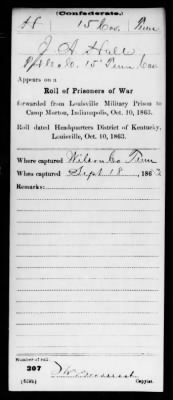 (Confederate.)
H 15 Cav. Tenn
J. A. Hall
Co. 15 Tenn Cav
Appears on a
Roll of Prisoners of War
forwarded from Louisville Military Prison to
Camp Morton, Indianapolis, Oct. 10, 1863.
Roll dated Headquarters District of Kentucky,
Louisville, Oct. 10, 1863.
Where captured Wilson Co Tenn
When captured Sept 18, 1863
Remarks:
Number of roll:
207
(639b) Copyist.